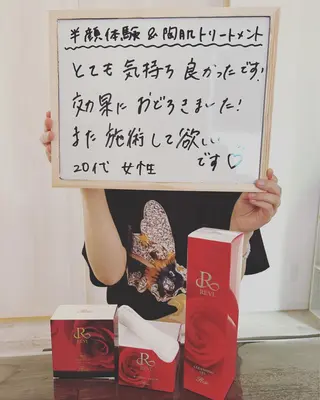 半顔体験 & 陶肌トリートメント
とても 気持ち 良かったです!
効果に おどろきました!
また 施術して欲しい
です♡
20代 女性
R
REVI
R
REVI
R
REVI